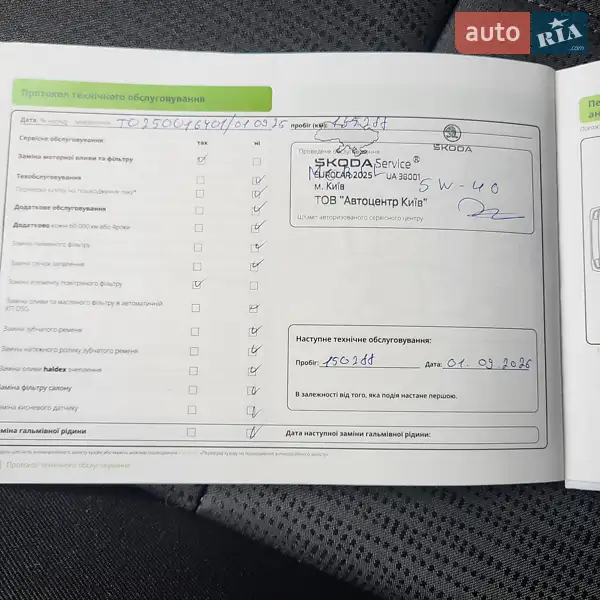 auto RIA .com
Протокол технічного обслуговування
Дата, № наряд - замовлення: TO250016401/01.09.25 пробіг (км):
Сервісне обслуговування: так ні
Проведене обслуговування
SKODA
Заміна моторної оливи та фільтру
SKODA Service®
EUROCAR 2025 UA 38001
Техобслуговування
м. Київ
5W-40
Перевірка кузову на пошкодження лаку*
ТОВ "Автоцентр Київ"
Додаткове обслуговування
Штамп авторизованого сервісного центру
Додатково кожні 60 000 км або 4роки
Заміна паливного фільтру
Заміна свічок запалення
Заміна елементу повітряного фільтру
Заміна оливи та масляного фільтру в автоматичній
КП DSG
Заміна зубчатого ременя
Наступне технічне обслуговування:
Заміна натяжного ролику зубчатого ременя
Пробіг: 150288 Дата: 01.09.2026
Заміна оливи haldex зчеплення
аміна фільтру салону
В залежності від того, яка подія настане першою.
міна кисневого датчику
міна гальмівної рідини
Дата наступної заміни гальмівної рідини:
Протокол технічного обслуговування